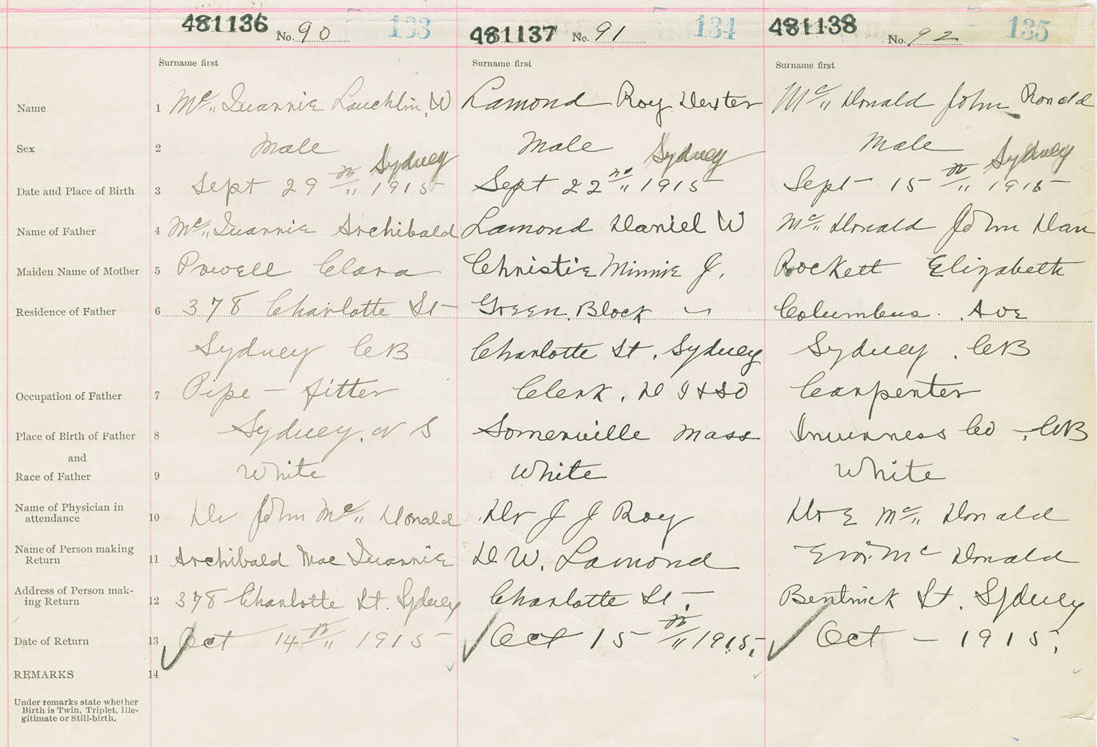 481136 No. 90 133 481137 No. 91 134 481138 No. 92 135
Surname first Surname first Surname first
Name 1 Mc Quannie Lauchlin, W Lamond Roy Dexter Mc Donald John Ronald
Sex 2 Male Male Male
Sydney Sydney Sydney
Date and Place of Birth 3 Sept 29th 1915 Sept 22nd 1915 Sept 15th 1915
Name of Father 4 Mc Quannie Archibald Lamond Daniel W Mc Donald John Dan
Maiden Name of Mother 5 Powell Clara Christie Minnie J. Rockett Elizabeth
Residence of Father 6 378 Charlotte St Green Block Columbus Ave
Sydney CB Charlotte St, Sydney Sydney CB
Occupation of Father 7 Pipe - fitter Clerk, D I & S Co Carpenter
Place of Birth of Father 8 Sydney, N S Somerville Mass Inverness Co, CB
and
Race of Father 9 White White White
Name of Physician in
attendance 10 Dr John Mc Donald Dr J J Roy Dr E Mc Donald
Name of Person making
Return 11 Archibald Mac Quannie D. W. Lamond Ew. Mc Donald
Address of Person mak-
ing Return 12 378 Charlotte St. Sydney Charlotte St. Bentinck St. Sydney
Date of Return 13 Oct 14th 1915 Oct 15th 1915. Oct - 1915.
REMARKS 14
Under remarks state whether
Birth is Twin, Triplet, Ille-
gitimate or Still-birth.